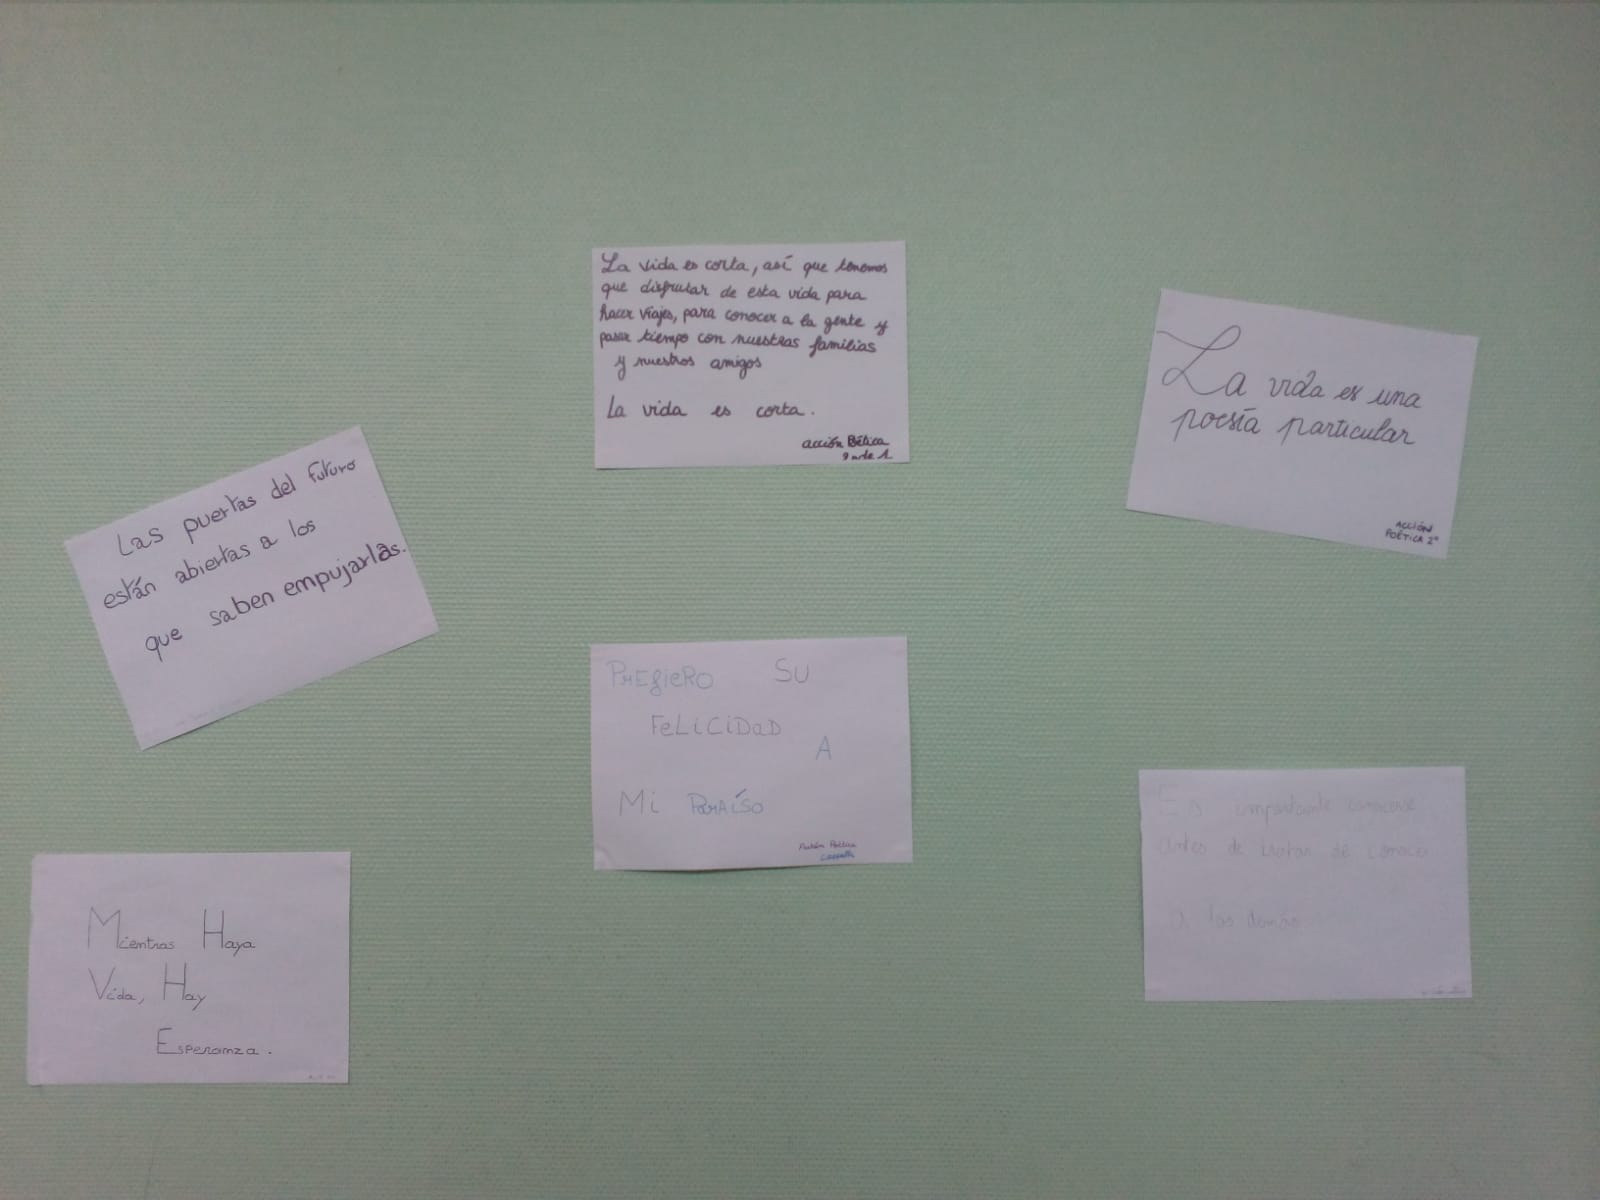 La vida es corta, así que tenemos
que disfrutar de esta vida para
hacer viajes, para conocer a la gente y
pasar tiempo con nuestras familias
y nuestros amigos
La vida es corta.
acción Poética
La vida es una
poesía particular
ACCIÓN
POÉTICA 2°
Las puertas del futuro
están abiertas a los
que saben empujarlas.
PREfieRO SU
FeLiCiDaD
A
Mi PARAíSO
Acción Poética
Mientras Haya
Vida, Hay
Esperanza.
Es importante conocerse
antes de tratar de conocer
a los demás